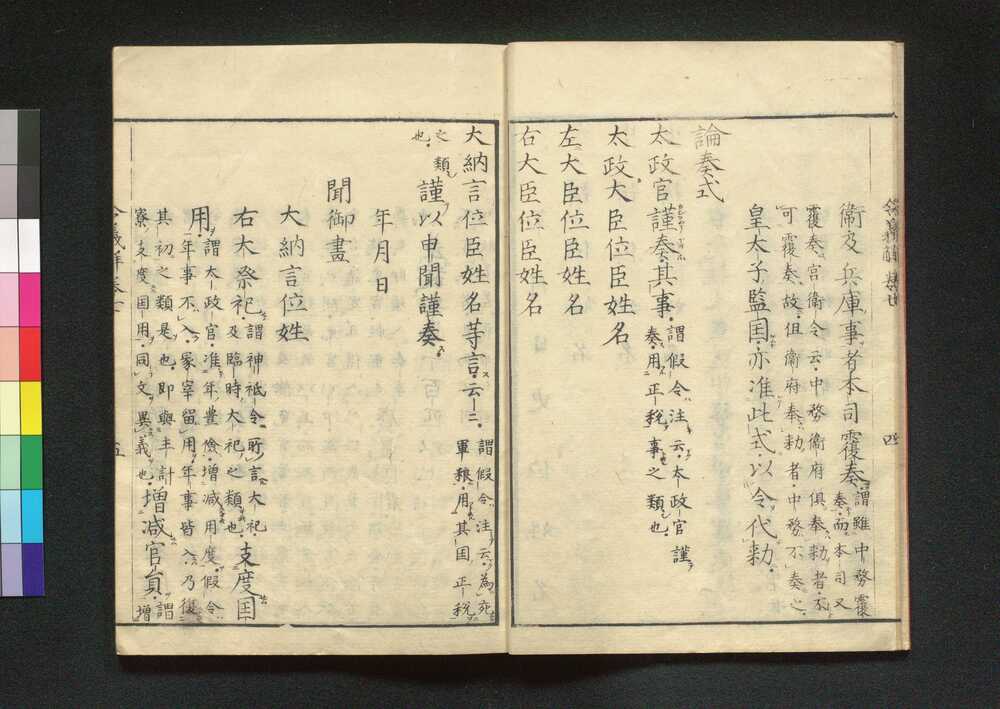 衛及兵庫事者本司覆奏謂雖中務覆
奏而本司又
覆奏宮衛令云中務衛府俱奏勅者不
可覆奏故但衛府奉勅者中務不奏之
皇太子監国亦准此式以令代勅
論奏式
太政官謹奏其事謂假令注云太政官謹
奏用正税事之類也
太政大臣位臣姓名
左大臣位臣姓名
右大臣位臣姓名
大納言位臣姓名等言云云謂假令注云為
軍粮用其国正税
之類
也
謹以申聞謹奏
年月日
聞御畫
大納言位姓
右大祭祀謂神祇令所言大祀
及臨時大祀之類也支度国
用謂太政官准年豊儉増減用度假令
年事不入冢宰留用年事皆入乃復
其初之類是也即與主計
寮支度国用同文異義也増減官員謂
増
四
五